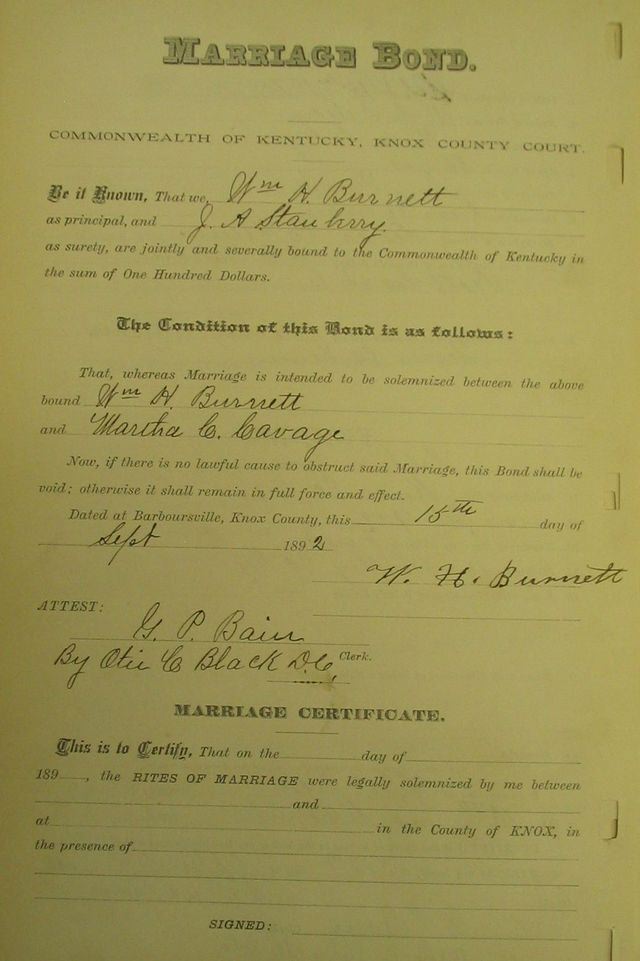 MARRIAGE BOND.
COMMONWEALTH OF KENTUCKY, KNOX COUNTY COURT.
Be it Known, That we, Wm H. Burnett
as principal, and J. A Stanberry.
as surety, are jointly and severally bound to the Commonwealth of Kentucky in
the sum of One Hundred Dollars.
The Condition of this Bond is as follows:
That, whereas Marriage is intended to be solemnized between the above
bound Wm H. Burnett
and Martha C. Cavage
Now, if there is no lawful cause to obstruct said Marriage, this Bond shall be
void; otherwise it shall remain in full force and effect.
Dated at Barboursville, Knox County, this 15th day of
Sept 1892
W. H. Burnett
ATTEST:
G. P. Bain
By Otie C Black D.C, Clerk.
MARRIAGE CERTIFICATE.
This is to Certify, That on the day of
189 , the RITES OF MARRIAGE were legally solemnized by me between
and
at in the County of KNOX, in
the presence of
SIGNED: